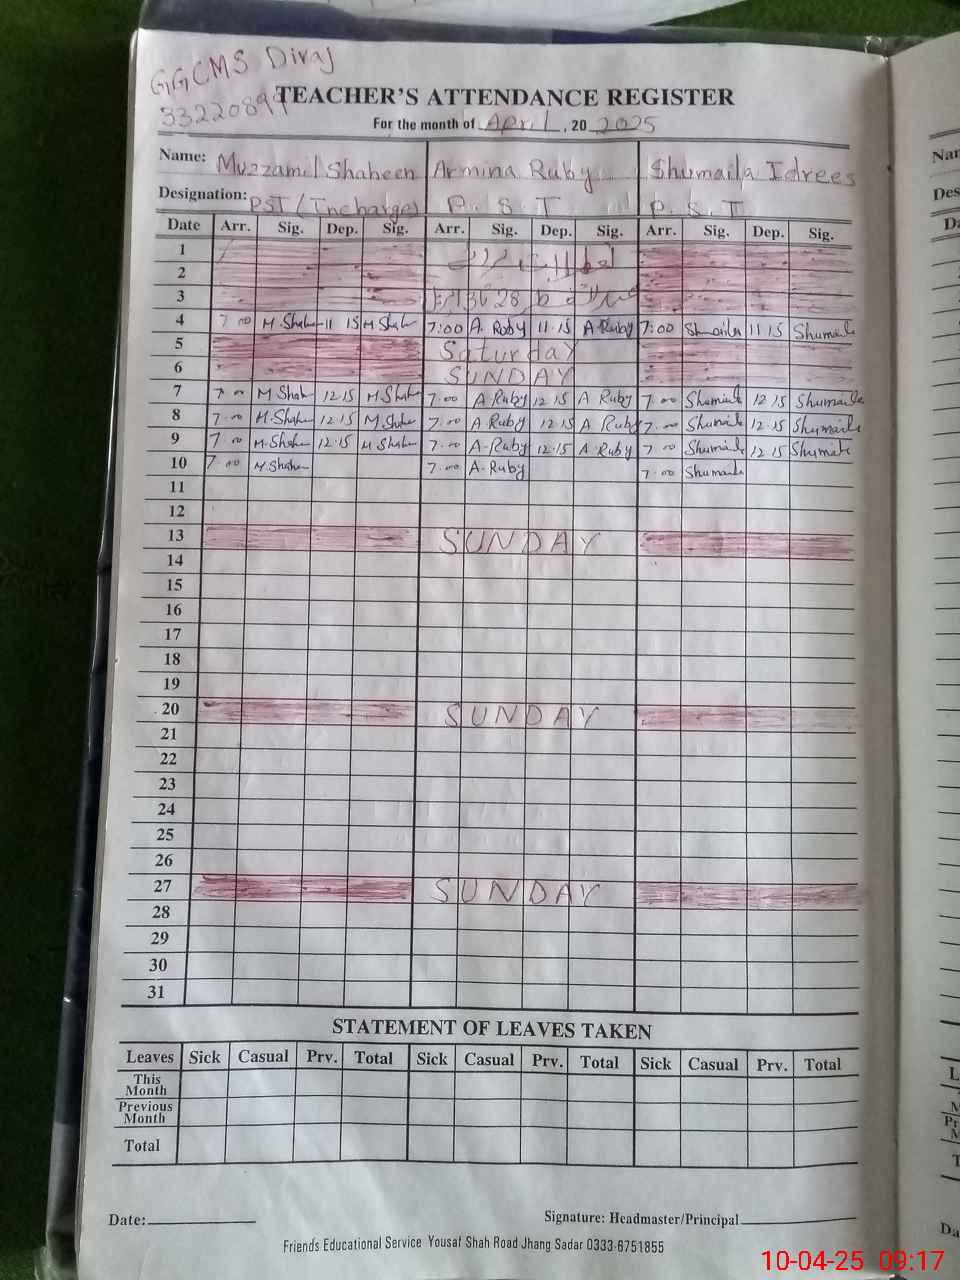 GGCMS Diraj
33220899
TEACHER'S ATTENDANCE REGISTER
For the month of April, 20 2025
Name: Muzzamil Shaheen Armina Ruby Shumaila Idrees
Designation: PST (Incharge) P.S.T P.S.T
Date Arr. Sig. Dep. Sig. Arr. Sig. Dep. Sig. Arr. Sig. Dep. Sig.
1
2
3
4 7:00 M.Shah 11 15 M.Shah 7:00 A. Ruby 11.15 A Ruby 7:00 Shumaila 11 15 Shumaila
5 Saturday
6 SUNDAY
7 7:00 M Shah 12.15 M.Shah 7:00 A Ruby 12.15 A Ruby 7:00 Shumaila 12 15 Shumaila
8 7:00 M.Shah 12.15 M.Shah 7:00 A Ruby 12 15 A Ruby 7:00 Shumaila 12.15 Shumaila
9 7:00 M.Shah 12.15 M.Shah 7:00 A-Ruby 12.15 A.Ruby 7:00 Shumaila 12 15 Shumaila
10 7:00 M.Shah 7:00 A.Ruby 7:00 Shumaila
11
12
13 SUNDAY
14
15
16
17
18
19
20 SUNDAY
21
22
23
24
25
26
27 SUNDAY
28
29
30
31
STATEMENT OF LEAVES TAKEN
Leaves Sick Casual Prv. Total Sick Casual Prv. Total Sick Casual Prv. Total
This Month
Previous Month
Total
Date:
Signature: Headmaster/Principal
Friends Educational Service Yousaf Shah Road Jhang Sadar 0333-6751855
10-04-25 09:17